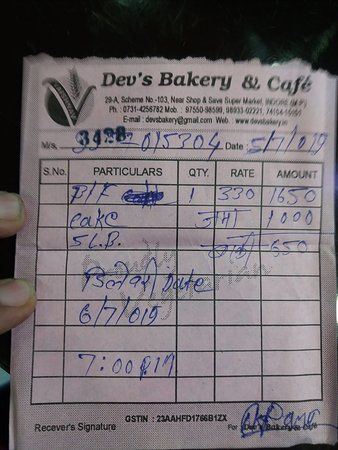 Dev's Bakery & Café
29-A, Scheme No.-103, Near Shop & Save Super Market, INDORE (M.P.)
Ph. : 0731-4256782 Mob. : 97550-98599, 98933-02221,
E-mail : devsbakery@gmail.com Web. : www.devsbakery.in
M/s. 015304 Date : 5/7/019
S.No. PARTICULARS QTY. RATE AMOUNT
B/F 1 330 1650
cake जमा 1000
5 L.B. बाकी 650
डिलेवरी Date
6/7/019
7:00
GSTIN : 23AAHFD1766B1ZX
Recever's Signature For : Dev's Bakery & Café